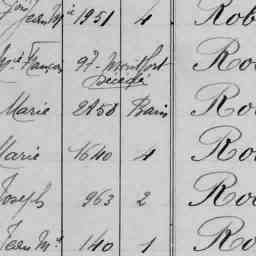 Jean M.ie 1951 4 Rob
M.ie Françoise 97 Montfort Ro
Décédé
Marie 2850 Bain Ro
Marie 1640 4 Ro
Joseph 963 2 Ro
Jean M.ie 140 1 Ro